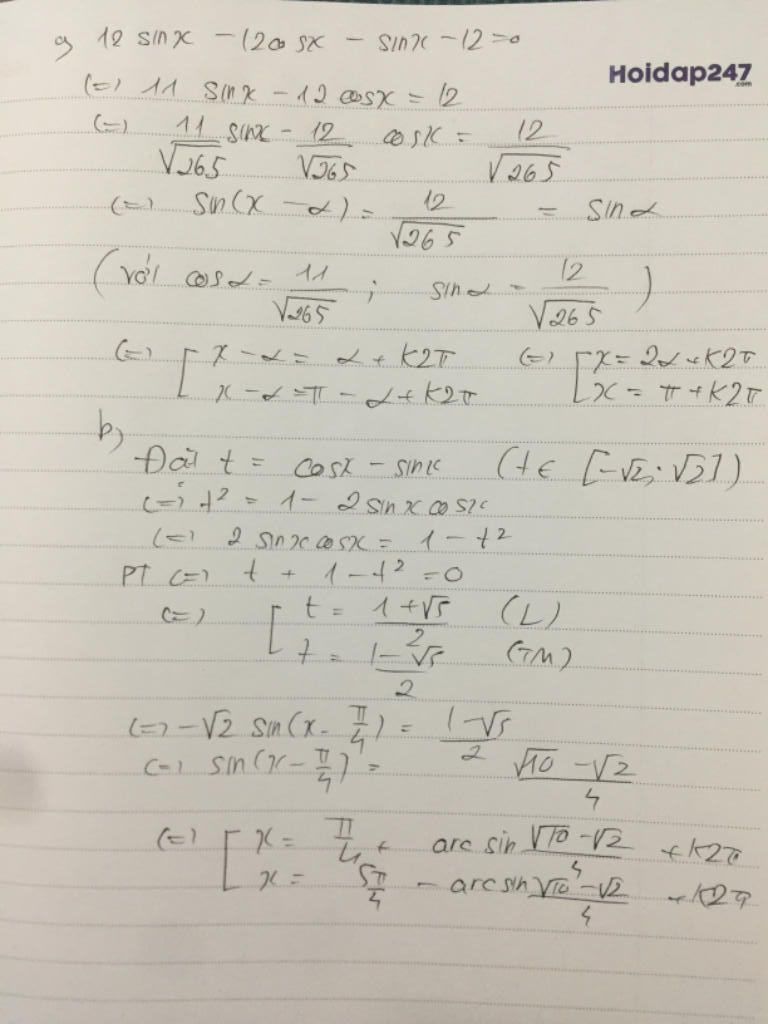 a, 12 sinx - 12cosx - sinx - 12 = 0
Hoidap247
.com
(=) 11 sinx - 12 cosx = 12
(=) 11/√265 sinx - 12/√265 cosx = 12/√265
(=) sin(x - α) = 12/√265 = sinα
(với cosα = 11/√265 ; sinα = 12/√265)
(=) [ x - α = α + k2π (=) [ x = 2α + k2π
x - α = π - α + k2π x = π + k2π
b,
Đặt t = cosx - sinx (t ∈ [-√2; √2])
(=) t² = 1 - 2 sinx cosx
(=) 2 sinx cosx = 1 - t²
PT (=) t + 1 - t² = 0
(=) [ t = (1+√5)/2 (L)
t = (1-√5)/2 (TM)
(=) -√2 sin(x - π/4) = (1-√5)/2
(=) sin(x - π/4) = (√10 - √2)/4
(=) [ x = π/4 + arc sin (√10 - √2)/4 + k2π
x = 5π/4 - arc sin (√10 - √2)/4 + k2π